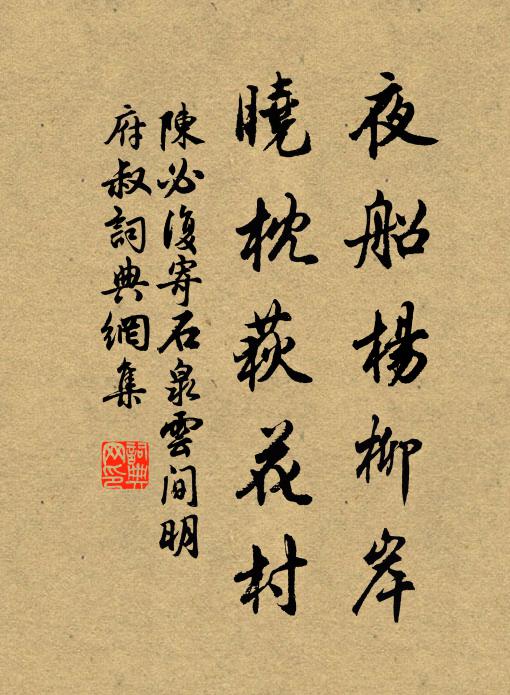 夜船楊柳岸
曉枕荻花村
陳必復寄石泉雲間明
府叔詞典網集
詞典网印